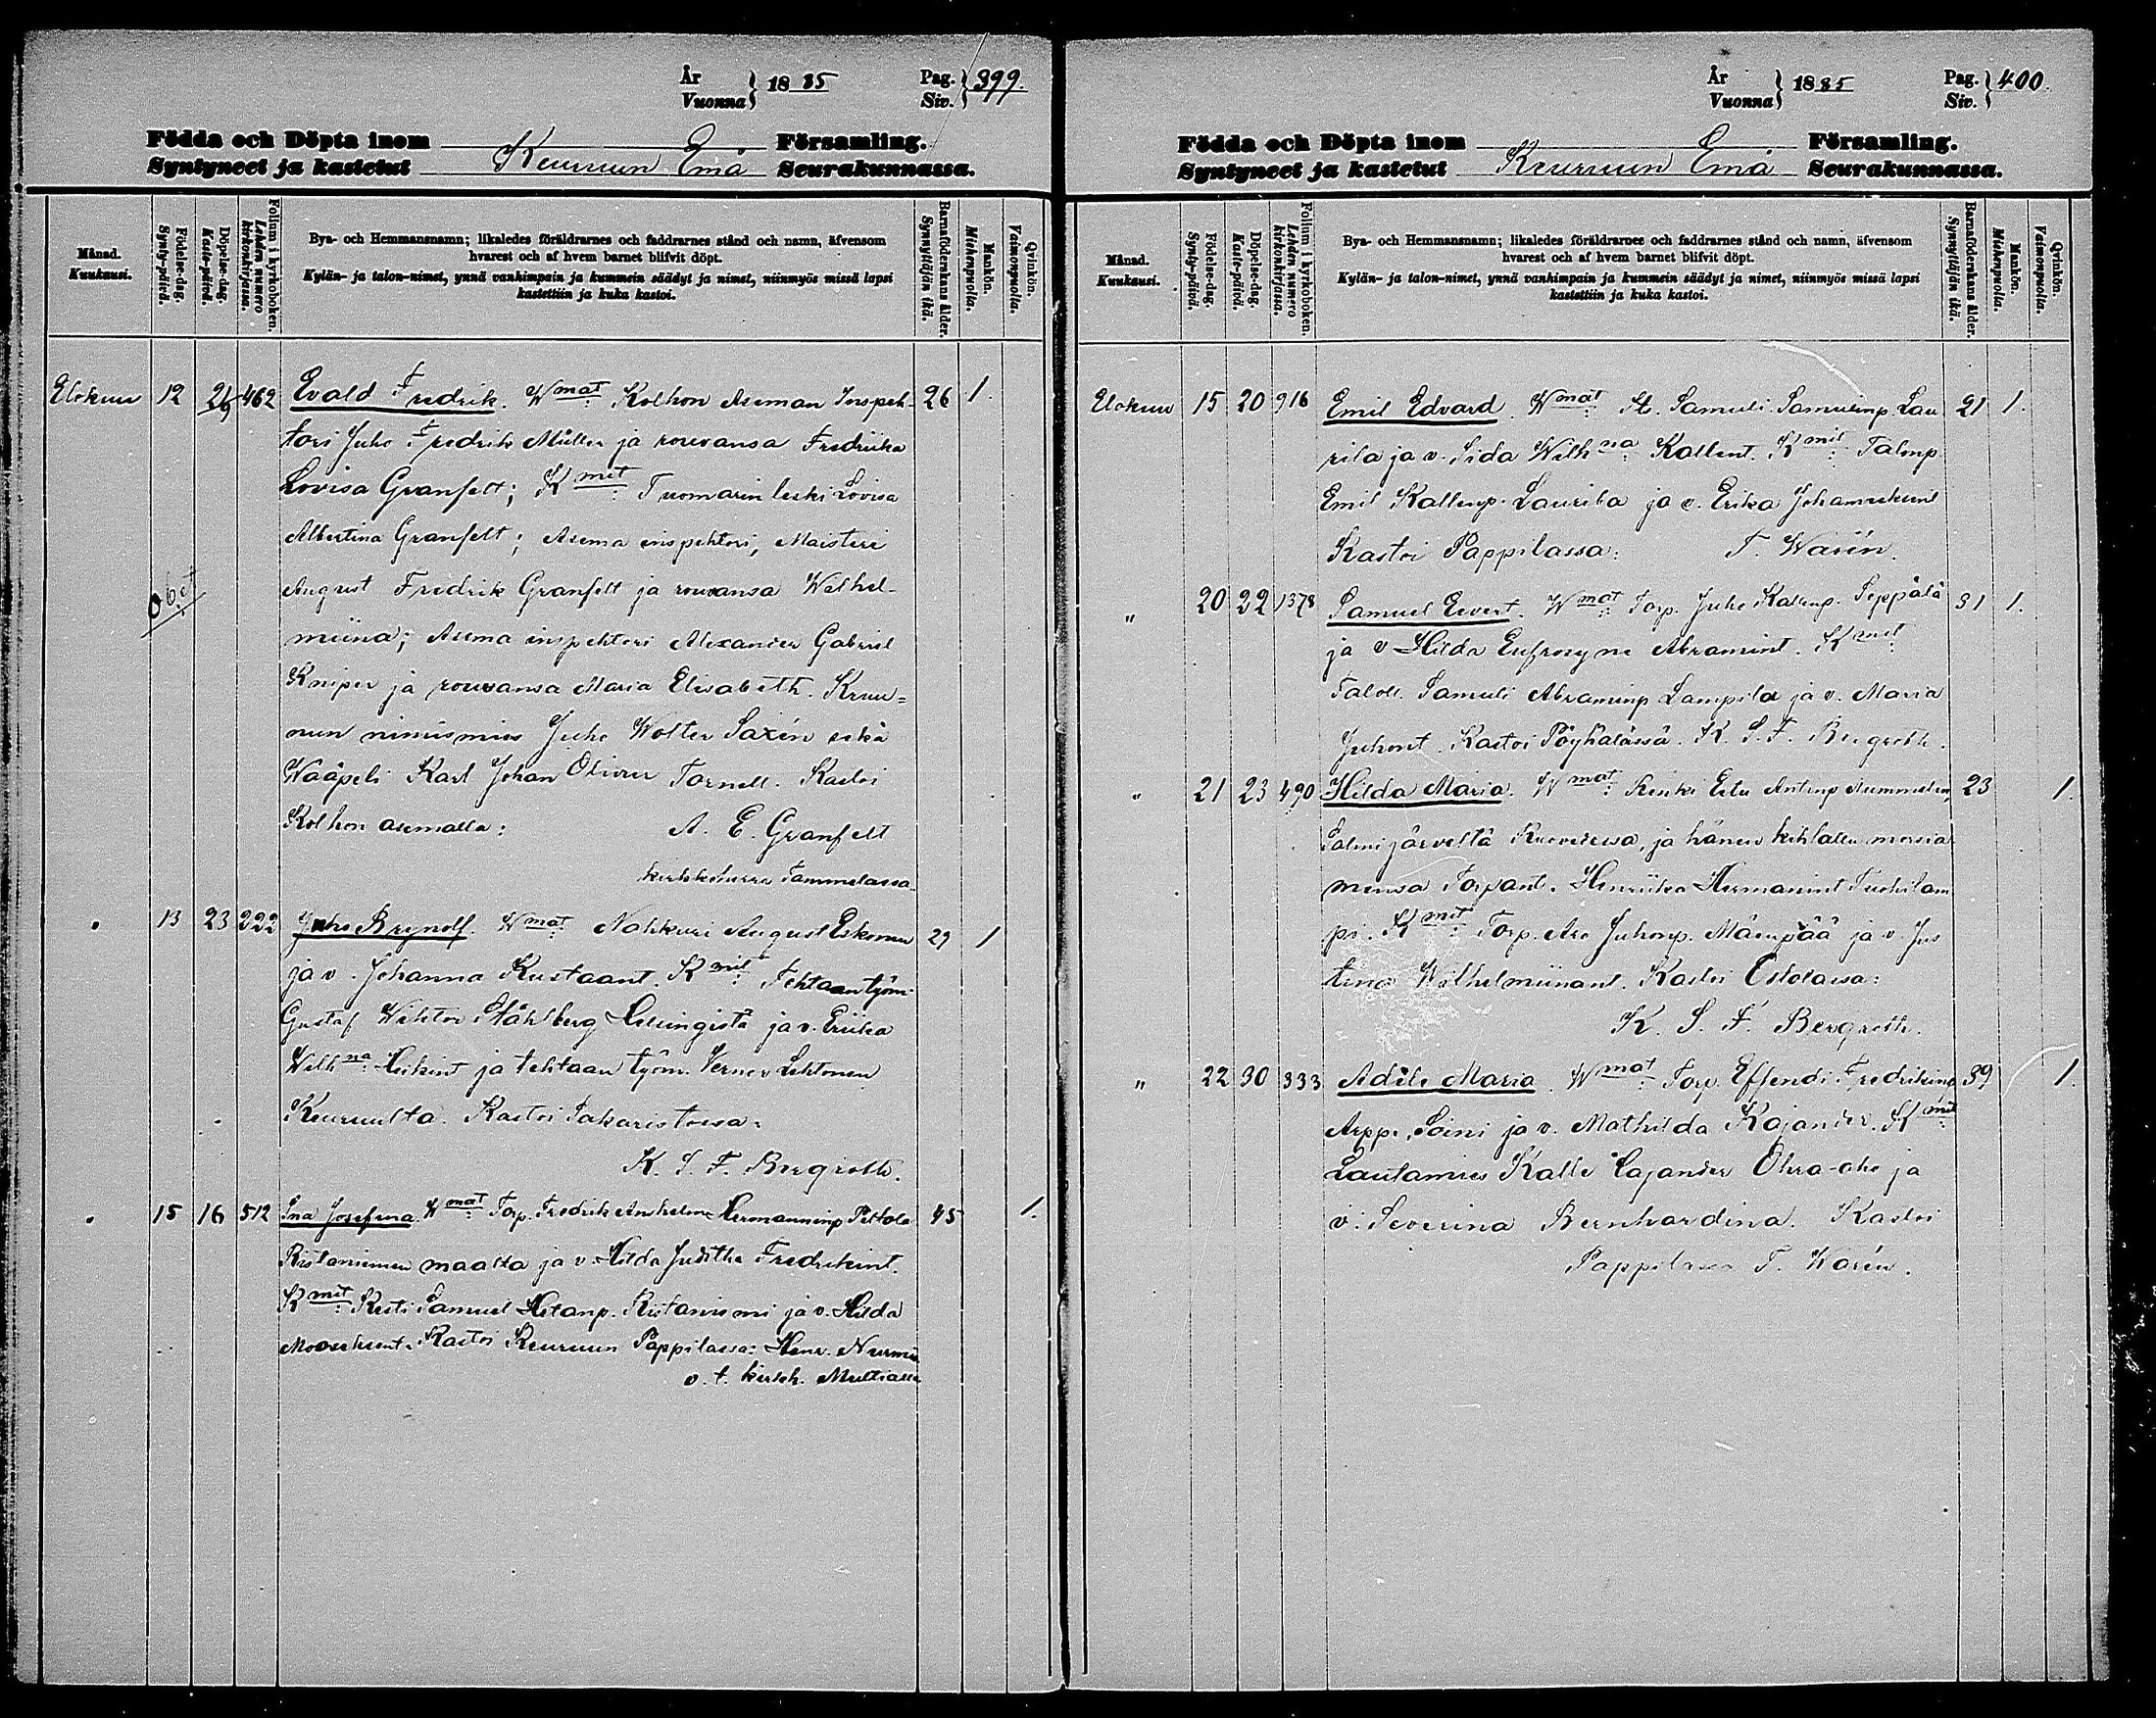 År
Vuonna } 1885 Pag.
Siv. } 399.
Födda och Döpta inom Församling.
Syntyneet ja kastetut Keuruun Emä Seurakunnassa.
Månad.
Kuukausi.
Födelse-dag.
Synty-päivä.
Döpelse-dag.
Kaste-päivä.
Folium i kyrkoboken.
Lehden numero
kirkonkirjassa.
Bya- och Hemmansnamn; likaledes föräldrarnes och faddrarnes stånd och namn, äfvensom
hvarest och af hvem barnet blifvit döpt.
Kylän- ja talon-nimet, ynnä vanhimpain ja kummein säädyt ja nimet, niinmyös missä lapsi
kastettiin ja kuka kastoi.
Barnaföderskans ålder.
Synnyttäjän ikä.
Mankön.
Miehenpuolia.
Qvinkön.
Vaimonpuolia.
Elokuu 12 462 Evald Fredrik. Wmat: Kolhon Aseman Inspeh- 26 1.
tori Juho Fredrik Müller ja rouvansa Fredriika
Lovisa Granfelt; Kmit: Tuomarin leski Lovisa
Albertina Granfelt; Asema inspehtori, Maisteri
obiit August Fredrik Granfelt ja rouvansa Wilhel-
miina; Asema inspehtori Alexander Gabriel
Kniper ja rouvansa Maria Elisabeth. Kruu=
nun nimismies Juho Wolter Saxén sekä
Wääpeli Karl Johan Oliver Tornell. Kastoi
Kolhon asemalla: A. E. Granfelt
kirkkoherra Tammelassa.
" 13 23 222 Juho Brynolf. Wmat: Nahkuri August Eskonen 29 1
ja v. Johanna Kustaant. Kmit: Tehtaantyöm.
Gustaf Wihtor Ståhlberg Helsingistä ja v. Eriika
Wilhna: Heikint ja tehtaan työm. Verner Lehtonen
Keuruulta. Kastoi Sakaristossa:
K. S. F. Bergroth.
" 15 16 512 Ina Josefina. Wmat: Torp. Fredrik Anshelm Hermanninp Peltola 45 1.
Ristaniemen maalta ja v. Hilda Juditha Fredrikint.
Kmit: Kesti Samuel Hetanp. Ristaniemi ja v. Hilda
Kastoi Keuruun Pappilassa: Henr. Nurmio
v. t. kirkh. Multialla
År
Vuonna } 1885 Pag.
Siv. } 400.
Födda och Döpta inom Församling.
Syntyneet ja kastetut Keuruun Emä Seurakunnassa.
Månad.
Kuukausi.
Födelse-dag.
Synty-päivä.
Döpelse-dag.
Kaste-päivä.
Folium i kyrkoboken.
Lehden numero
kirkonkirjassa.
Bya- och Hemmansnamn; likaledes föräldrarnes och faddrarnes stånd och namn, äfvensom
hvarest och af hvem barnet blifvit döpt.
Kylän- ja talon-nimet, ynnä vanhimpain ja kummein säädyt ja nimet, niinmyös missä lapsi
kastettiin ja kuka kastoi.
Barnaföderskans ålder.
Synnyttäjän ikä.
Mankön.
Miehenpuolia.
Qvinkön.
Vaimonpuolia.
Elokuu 15 20 916 Emil Edvard. Wmat: Samuli Samulinp. Lau 21 1.
rila ja v. Sida Wilhna: Kallent. Kmit: Talonp
Emil Kallenp. Laurila ja v. Erika Johanneksent
Kastoi Pappilassa: T. Warén.
" 20 22 1378 Samuel Evert. Wmat: Torp. Juho Kallenp. Seppälä 31 1.
ja v Hilda Eufrosyne Abramint. Kmit
Taloll. Samuli Abraminp Lampila ja v. Maria
Juhont. Kastoi Pöyhälässä. K. S. F. Bergroth.
" 21 23 490 Hilda Maria. Wmat: Renki Eetu Antinp Nummelin 23 1.
Salmijärveltä Ruovedessä, ja hänen kihlattu morsia
mensa Torpant. Henriika Hermanint Tuohilam
pi. Kmit: Torp. Aro Juhonp. Mäenpää ja v. Jus
tina Wilhelmiinant. Kastoi Ostolassa:
K. S. F. Bergroth.
" 22 30 333 Adéle Maria. Wmat: Torp. Effendi Fredrikinp 39 1.
Arppe, Soini ja v. Mathilda Kajander. Kmit:
Lautamies Kalle Cajander Ohra-aho ja
v. Severina Bernhardina. Kastoi
Pappilassa T. Warén.